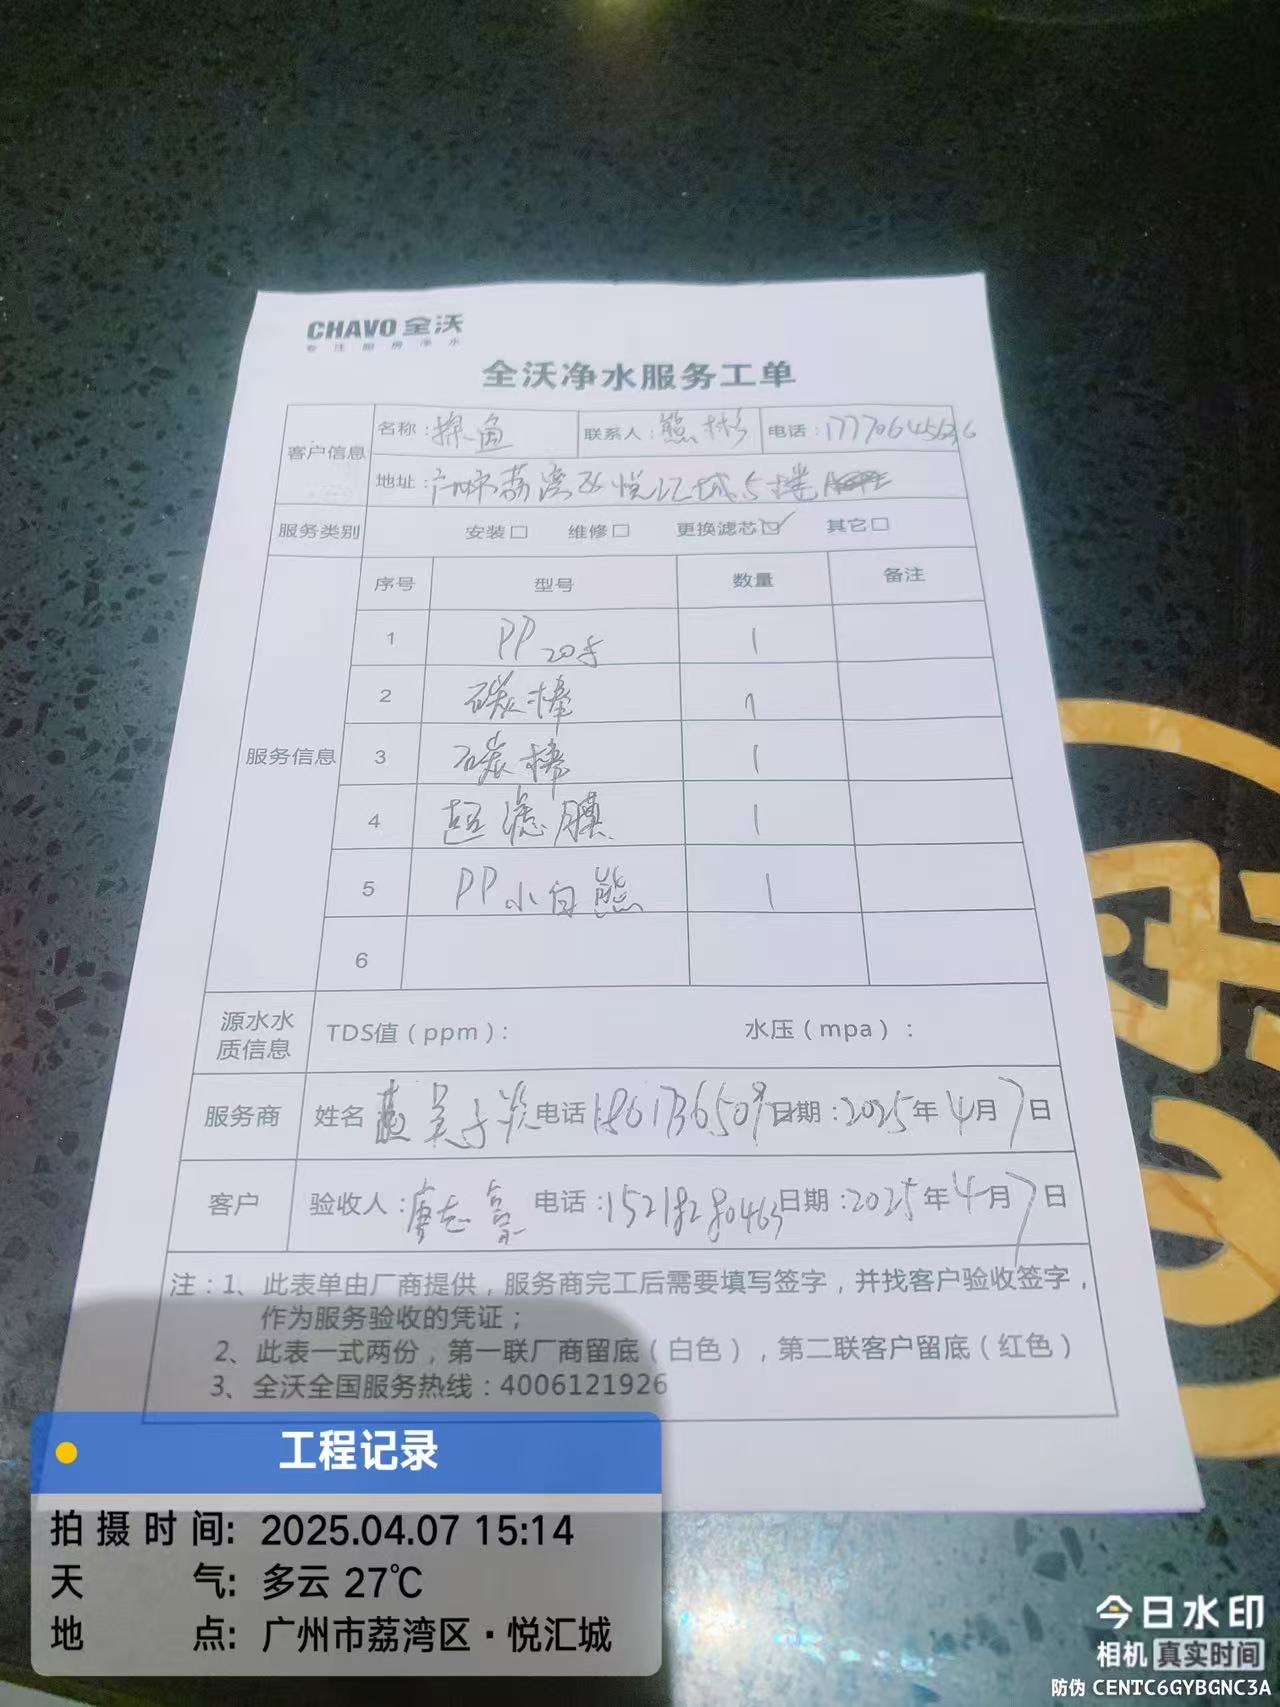 CHAVO 全沃
专注厨房净水
全沃净水服务工单
客户信息 名称：探鱼 联系人：熊彬 电话：
地址：广州市荔湾区悦汇城5楼
服务类别 安装□ 维修□ 更换滤芯☑ 其它□
服务信息 序号 型号 数量 备注
1 PP 20寸 1
2 碳棒 1
3 碳棒 1
4 超滤膜 1
5 PP小白熊 1
6
源水水质信息 TDS值（ppm）： 水压（mpa）：
服务商 姓名 电话 日期：2025年4月7日
客户 验收人：廖志富 电话： 日期：2025年4月7日
注：1、此表单由厂商提供，服务商完工后需要填写签字，并找客户验收签字，
作为服务验收的凭证；
2、此表一式两份，第一联厂商留底（白色），第二联客户留底（红色）
3、全沃全国服务热线：4006121926
工程记录
拍摄时间：2025.04.07 15:14
天气：多云 27℃
地点：广州市荔湾区·悦汇城
今日水印
相机 真实时间
防伪 CENTC6GYBGNC3A